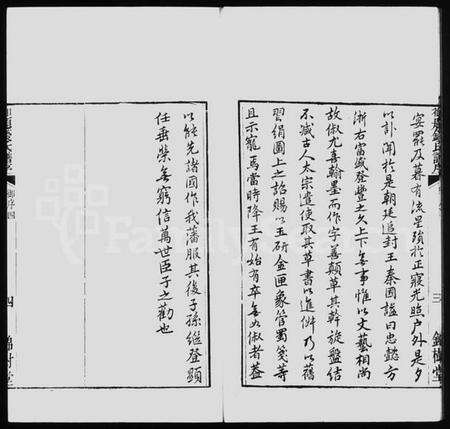 宴罷及暮有流星殞於正寢光照戶外是夕
以訃聞於是朝廷追封王秦國謚曰忠懿方
淅右富盛登豐之久上下無事惟以文藝相尚
故俶尤喜翰墨而作字善顛草其斡旋盤結
不減古人太宗遣使取其草書以進俶乃以舊
習絹圖上之詔賜以玉研金匣象管蜀箋等
且示寵焉當時降王有始有卒無如俶者蓋
三
錦樹堂
以能先諸國作我藩服其後子孫繼登顯
任垂榮無窮信萬世臣子之勸也
四
錦樹堂
FamilySearch